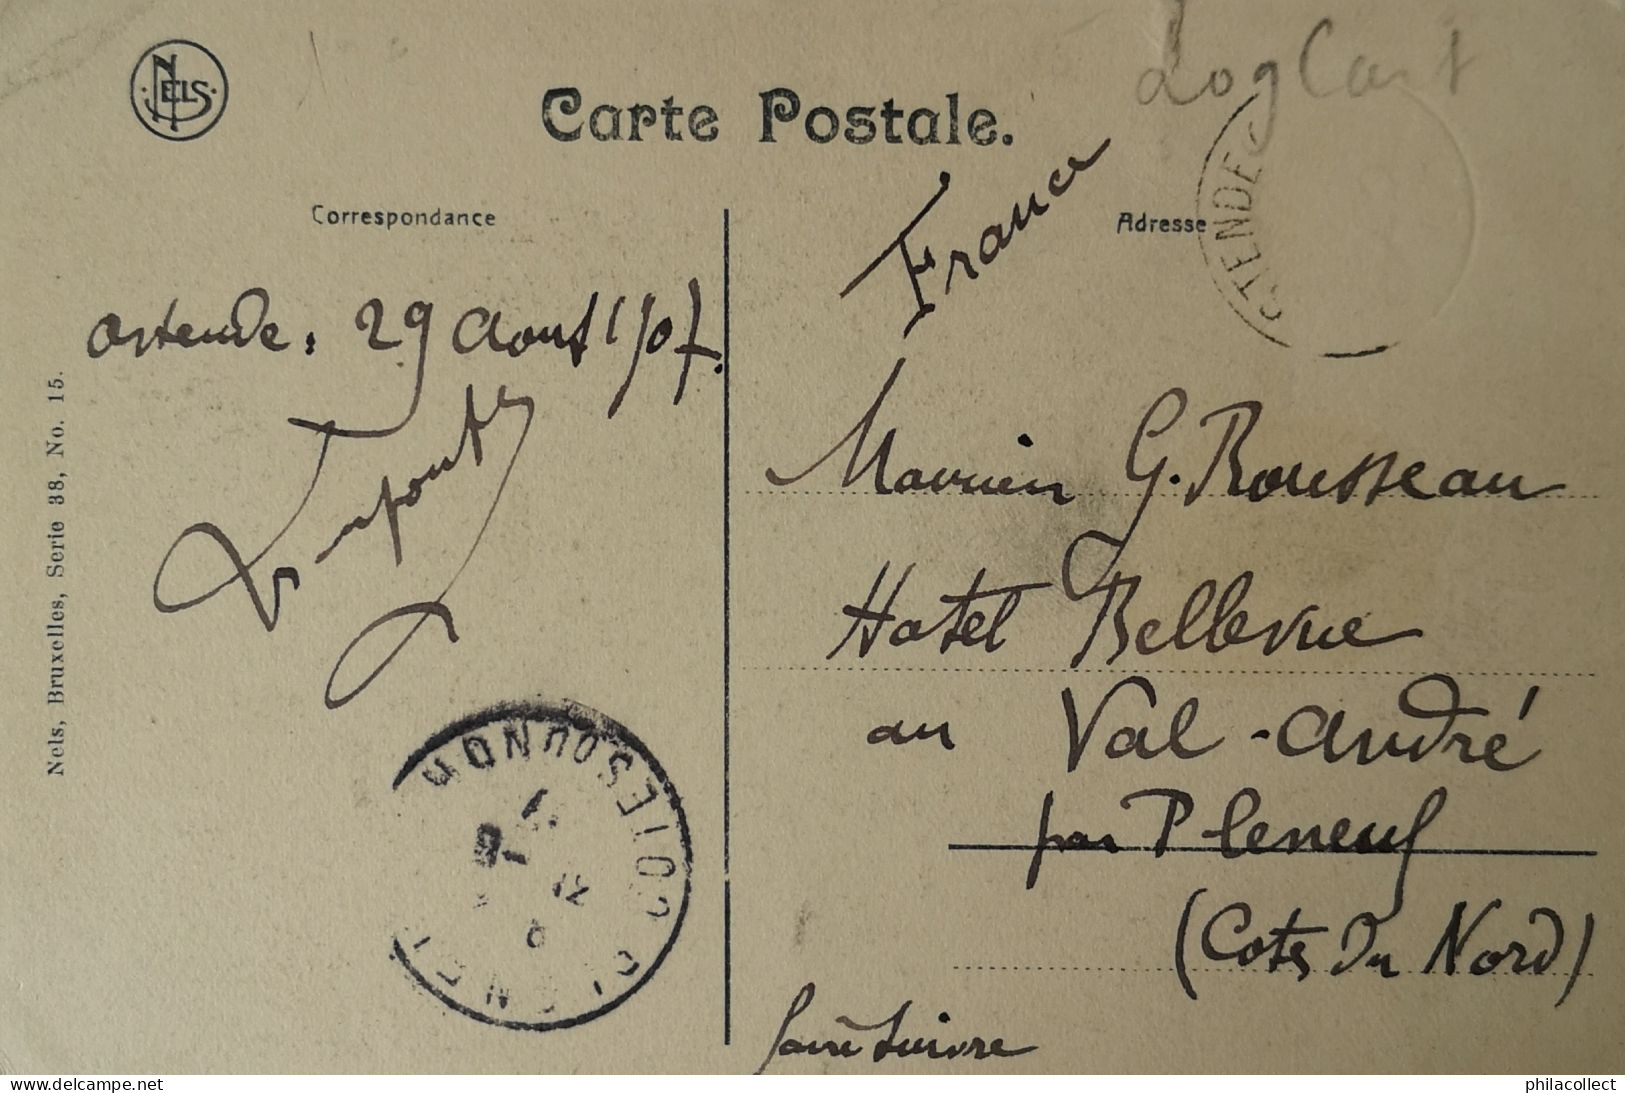 NELS
Carte Postale.
LogCart
France
Correspondance
Adresse
OSTENDE
Ostende, 29 Aout 1907.
G. Rousseau
Hotel Bellevue
au Val-André
par Pleneuf
(Cotes Du Nord)
faire suivre
Nels, Bruxelles, Serie 38, No. 15.
PLENEUF COTES DU NORD
12
philacollect